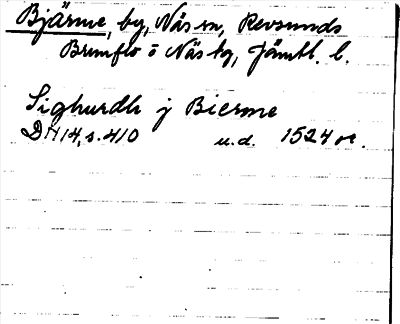 Bjärme, by, Näs sn, Revsunds
Brunflo o Näs tg, Jämtl. l.
Sighurdh j Bierme
DN 14, s. 410 u.d. 1524